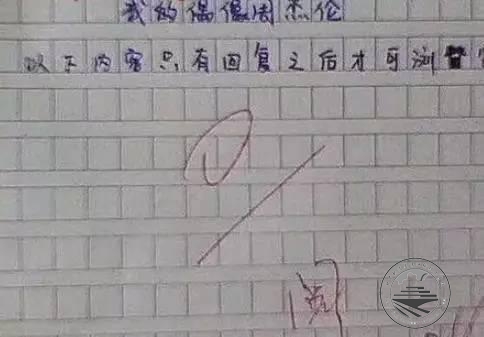 我的偶像周杰伦
以下内容只有回复之后才可浏
0
阅